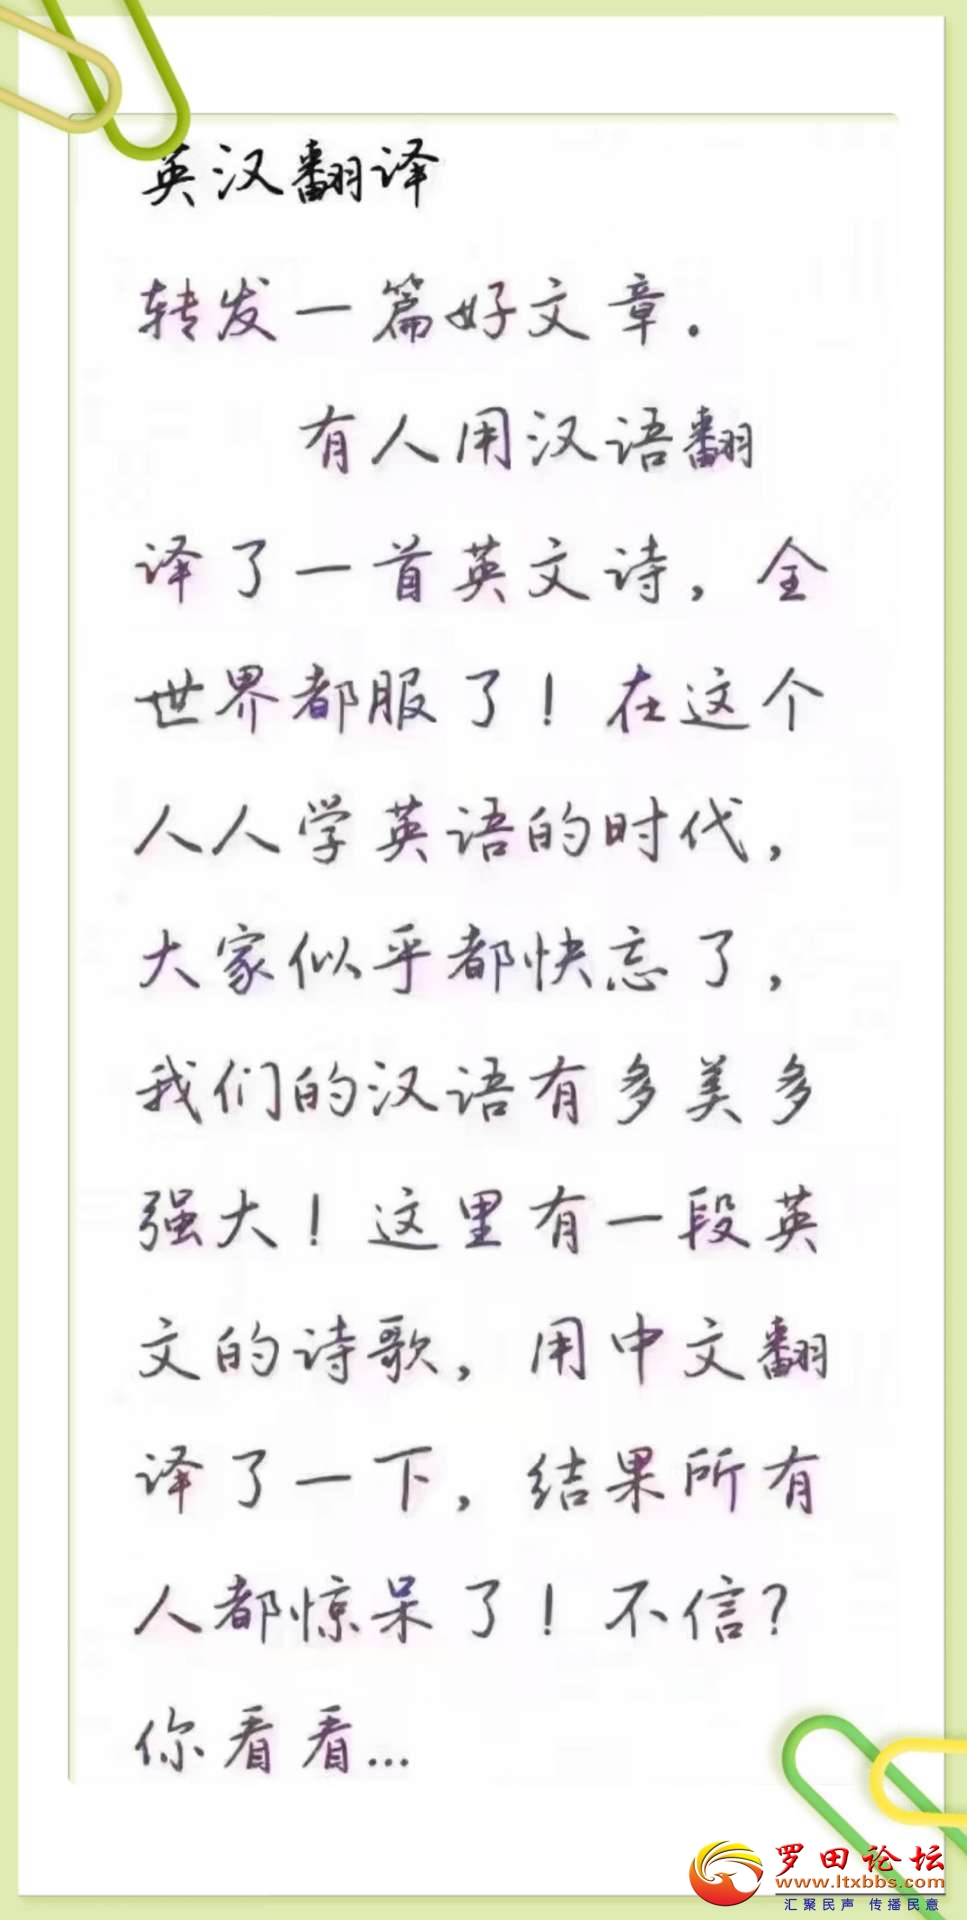 英汉翻译
转发一篇好文章.
有人用汉语翻
译了一首英文诗,全
世界都服了!在这个
人人学英语的时代,
大家似乎都快忘了,
我们的汉语有多美多
强大!这里有一段英
文的诗歌,用中文翻
译了一下,结果所有
人都惊呆了!不信?
你看看...
罗田论坛
www.ltxbbs.com
汇聚民声 传播民意